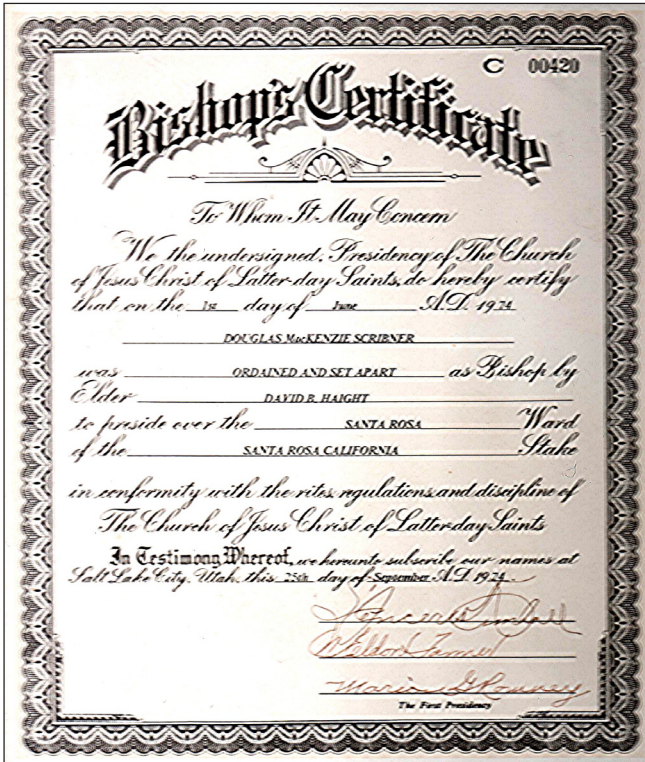 C 00420
Bishop's Certificate
To Whom It May Concern
We the undersigned, Presidency of The Church
of Jesus Christ of Latter-day Saints, do hereby certify
that on the 1st day of June A.D. 1974
DOUGLAS MacKENZIE SCRIBNER
was ORDAINED AND SET APART as Bishop by
Elder DAVID B. HAIGHT
to preside over the SANTA ROSA Ward
of the SANTA ROSA CALIFORNIA Stake
in conformity with the rites, regulations and discipline of
The Church of Jesus Christ of Latter-day Saints
In Testimony Whereof, we hereunto subscribe our names at
Salt Lake City, Utah, this 25th day of September A.D. 1974.
Spencer W. Kimball
N Eldon Tanner
Marion G Romney
The First Presidency